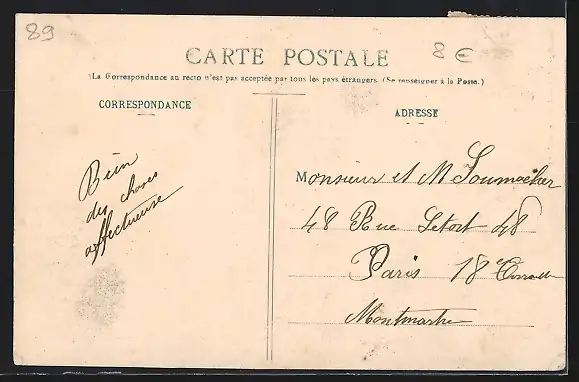 89
8 €
CARTE POSTALE
La Correspondance au recto n'est pas acceptée par tous les pays étrangers. (Se renseigner à la Poste.)
CORRESPONDANCE
ADRESSE
Bien
des choses
affectueuse
Monsieur et M Soumacher
48 Rue Letort 48
Paris 18e
Montmartre